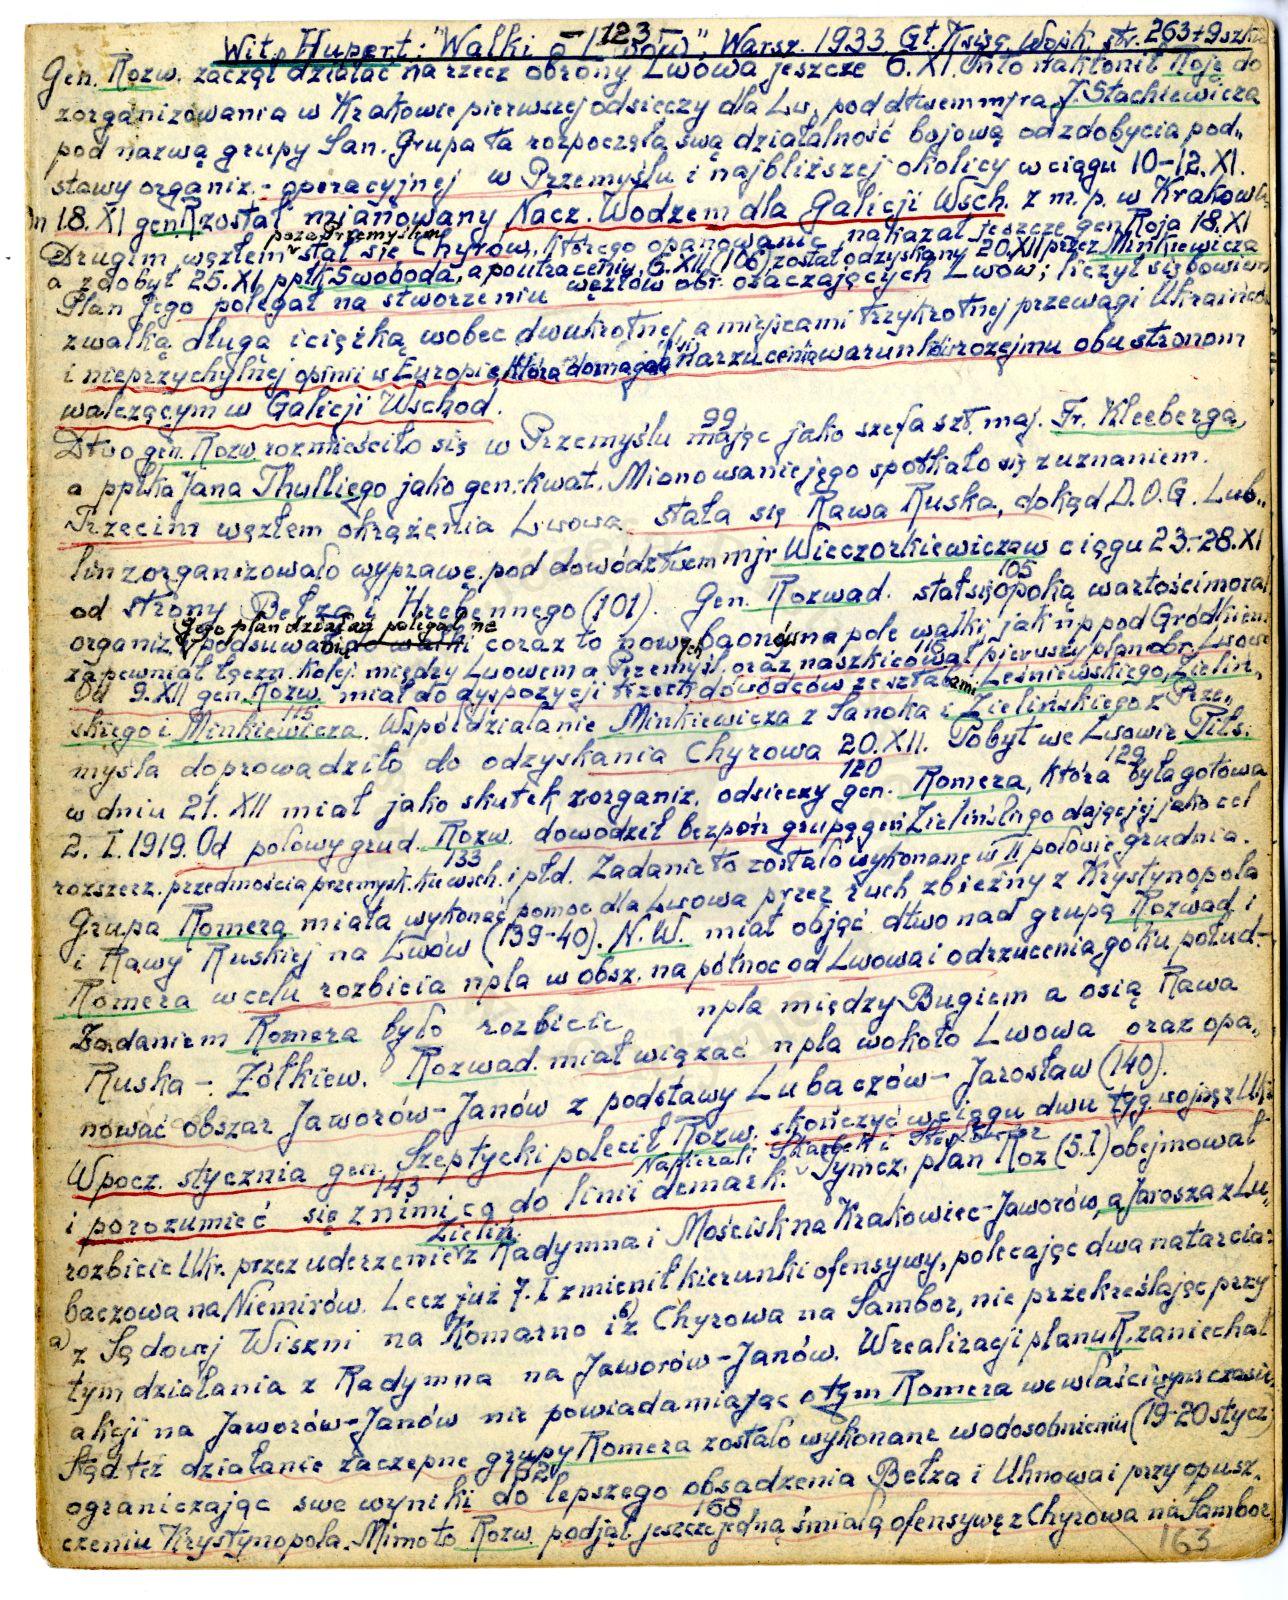 123
Wit. Hupert: "Walki o Lwów", Warsz. 1933. Gł. Księg. Wojsk. str. 263+9 szkic
Gen. Rozw. zaczął działać na rzecz obrony Lwowa jeszcze 6.XI. nakłonił Roję do
zorganizowania w Krakowie pierwszej odsieczy dla Lw. pod dtwem mjra J. Stachiewicza
pod nazwą grupy San. Grupa ta rozpoczęła swą działalność bojową od zdobycia pod„
stawy organiz.-operacyjnej w Przemyślu i najbliższej okolicy w ciągu 10-12.XI.
18.XI gen. R. został mianowany Nacz. Wodzem dla Galicji Wsch. z m.p. w Krakowie
poza Przemyślem
Drugim węzłem stał się Chyrów, którego opanowanie nakazał jeszcze gen Roja 18.XI
a zdobył 25.XI ppłk Swoboda, a po utraceniu, 6.XII (106) został odzyskany 20.XII przez Minkiewicza
Plan jego polegał na stworzeniu węzłów obr. otaczających Lwów; liczył się bowiem
z walką długą i ciężką wobec dwukrotnej, a miejscami trzykrotnej przewagi Ukraińców
i nieprzychylnej opinii w Europie, która domagała się narzucenia warunków rozejmu obu stronom
walczącym w Galicji Wschod.
99
Dtwo gen. Rozw. rozmieściło się w Przemyślu mając jako szefa szt. maj. Fr. Kleeberga,
a ppłka Jana Thulliego jako gen.-kwat. Mianowanie jego spotkało się z uznaniem.
Trzecim węzłem okrążenia Lwowa stała się Rawa Ruska, dokąd D.O.G. Lub„
lin zorganizowało wyprawę pod dowództwem mjr Wieczorkiewicza w ciągu 23.-28.XI
105
od strony Bełza i Hrebennego (101). Gen. Rozwad. stał się opoką wartości moral
Jego plan działań polegał na
organiz. podsuwaniu coraz to nowych baonów na pole walki, jak np pod Gródkiem
110
zapewniał łączn. kolej. między Lwowem a Przemyśl. oraz naszkicował pierwszy plan obr. Lwowa
Od 9.XII gen. Rozw. miał do dyspozycji trzech dowódców ze sztabami Leśniewskiego, Zieliń„
115
skiego i Minkiewicza. Współdziałanie Minkiewicza z Sanoka i Zielińskiego z Prze„
myśla doprowadziło do odzyskania Chyrowa 20.XII. Pobyt we Lwowie Piłs.
120 129
w dniu 21. XII miał jako skutek zorganiz. odsieczy gen. Romera, która była gotowa
2. I. 1919. Od połowy grud. Rozw. dowodził bezpośr. grupą gen Zielińskiego dając jej jako cel
133
rozszerz. przedmościa przemysk. ku wsch. i płd. Zadanie to zostało wykonane w II połowie grudnia.
Grupa Romera miała wykonać pomoc dla Lwowa przez ruch zbieżny z Krystynopola
i Rawy Ruskiej na Lwów (139-40). N.W. miał objąć dtwo nad grupą Rozwad i
Romera w celu rozbicia npla w obsz. na północ od Lwowa i odrzucenia go ku połud-
Zadaniem Romera było rozbicie npla między Bugiem a osią Rawa
Ruska - Żółkiew. Rozwad. miał wiązać npla wokoło Lwowa oraz opa„
nować obszar Jaworów-Janów z podstawy Lubaczów-Jarosław (140).
W pocz. stycznia gen. Szeptycki polecił Rozw. skończyć w ciągu dwu tyg. wojnę z Ukr
Napierali Skarbek i
143
i porozumieć się z nimi co do linii demark. Tymcz. plan Roz (5.I) obejmował
Zieliń.
rozbicie Ukr. przez uderzenie z Radymna i Mościsk na Krakowiec-Jaworów, a Jarosza z Lu„
baczowa na Niemirów. Lecz już 7.I zmienił kierunki ofensywy, polecając dwa natarcia:
a) z Sądowej Wiszni na Komarno i b) z Chyrowa na Sambor, nie przekreślając przy
tym działania z Radymna na Jaworów-Janów. W realizacji planu R. zaniechał
akcji na Jaworów-Janów nie powiadamiając o tym Romera we właściwym czasie,
Stąd też działanie zaczepne grupy Romera zostało wykonane w odosobnieniu (19-20 stycz)
152
ograniczając swe wyniki do lepszego obsadzenia Bełza i Uhnowa i przy opusz.
158
czeniu Krystynopola. Mimo to Rozw. podjął jeszcze jedną śmiałą ofensywę z Chyrowa na Sambor
163